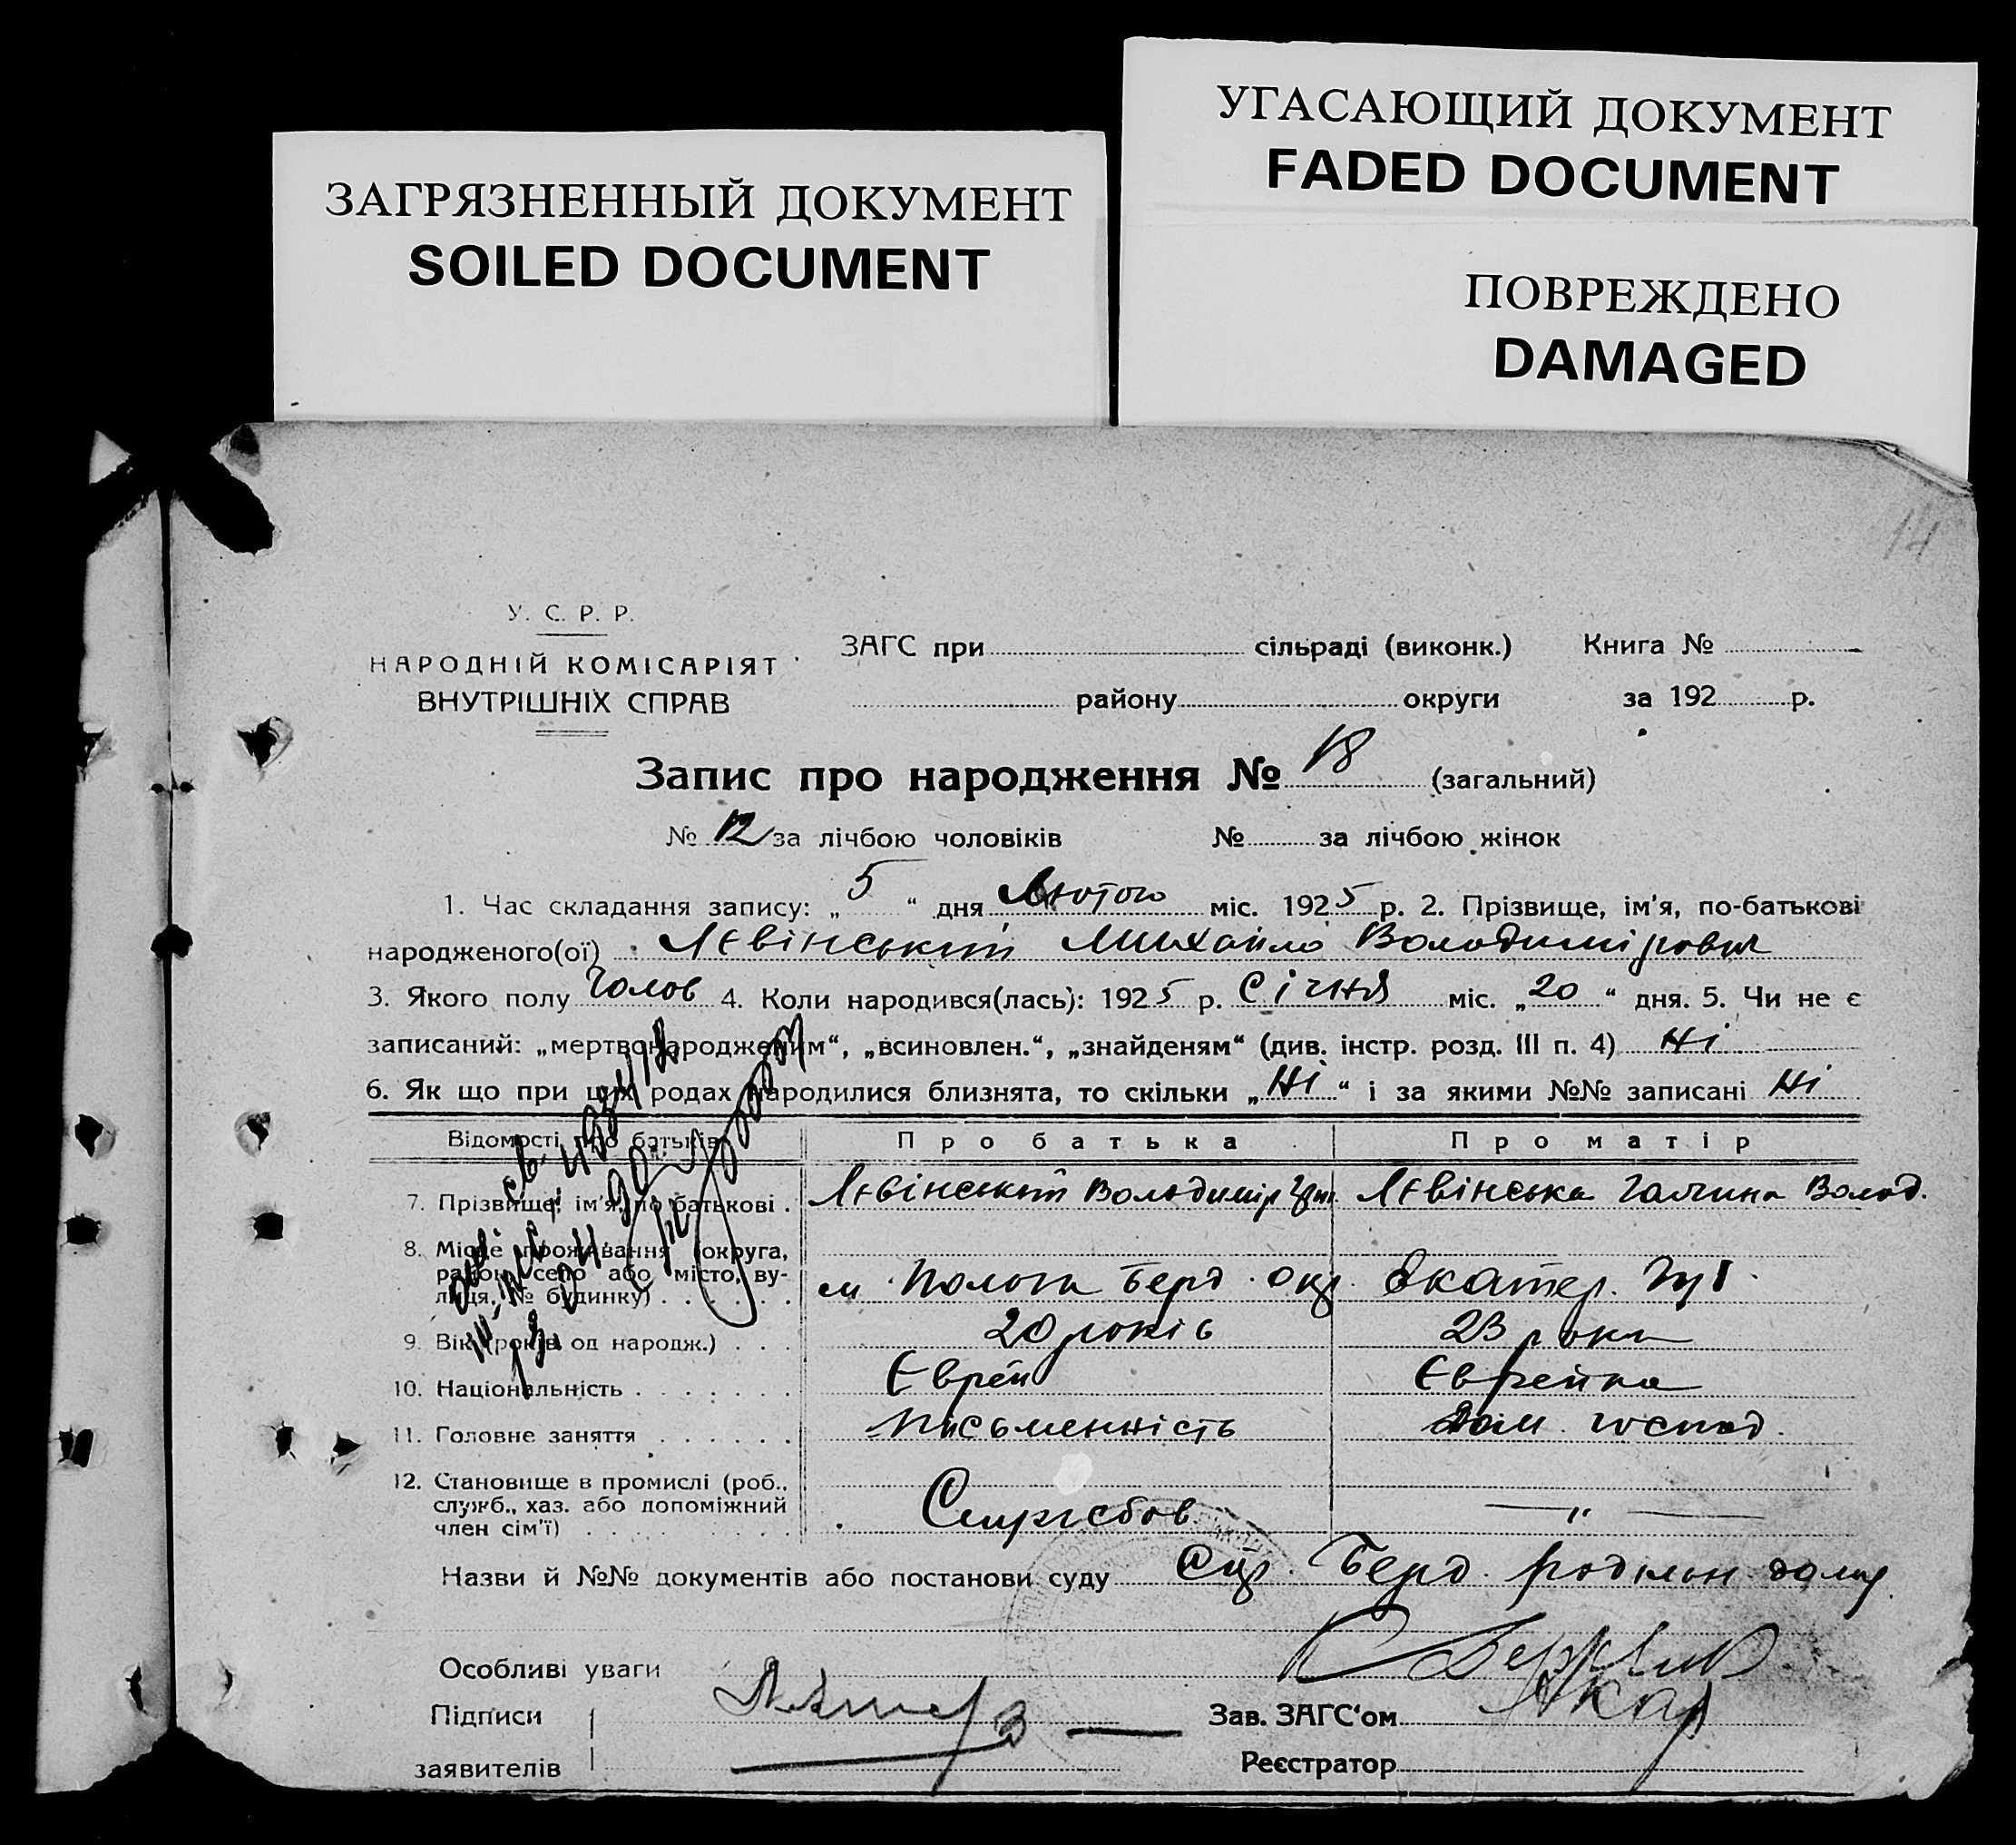 УГАСАЮЩИЙ ДОКУМЕНТ
FADED DOCUMENT
ЗАГРЯЗНЕННЫЙ ДОКУМЕНТ
SOILED DOCUMENT
ПОВРЕЖДЕНО
DAMAGED
14
У. С. Р. Р.
НАРОДНІЙ КОМІСАРІЯТ
ВНУТРІШНІХ СПРАВ
ЗАГС при сільраді (виконк.) Книга №
району округи за 192 р.
Запис про народження № 18 (загальний)
№ 12 за лічбою чоловіків № за лічбою жінок
1. Час складання запису: „ 5 “ дня Лютого міс. 1925 р. 2. Прізвище, ім'я, по-батькові
народженого(ої) Лєвінський Михайло Володимірович
3. Якого полу Чолов 4. Коли народився(лась): 1925 р. Січня міс. „20“ дня. 5. Чи не є
записаний: „мертвонародженим“, „всиновлен.“, „знайденям“ (див. інстр. розд. III п. 4) Ні
6. Як що при цих родах народилися близнята, то скільки „Ні“ і за якими №№ записані Ні
Відомості про батьків Про батька Про матір
7. Прізвище, ім'я, по батькові . Лєвінський Володимір Лєвінська Галина Волод.
8. Місце проживання (округа,
район, село або місто, ву-
лиця, № будинку) . . . . . . м. Пологи Берд. окр. Екатер. губ.
9. Вік (років од народж.) . . . 20 років 23 роки
10. Національність . . . . . . . Єврей Єврейка
11. Головне заняття . . . . . . Письменність Дом. господ.
12. Становище в промислі (роб.,
служб., хаз. або допоміжний
член сім'ї) . . . . . . . . . Служебов — „ —
Назви й №№ документів або постанови суду Берд. родильн. дому
Особливі уваги
Підписи Зав. ЗАГС‘ом
заявителів Реєстратор